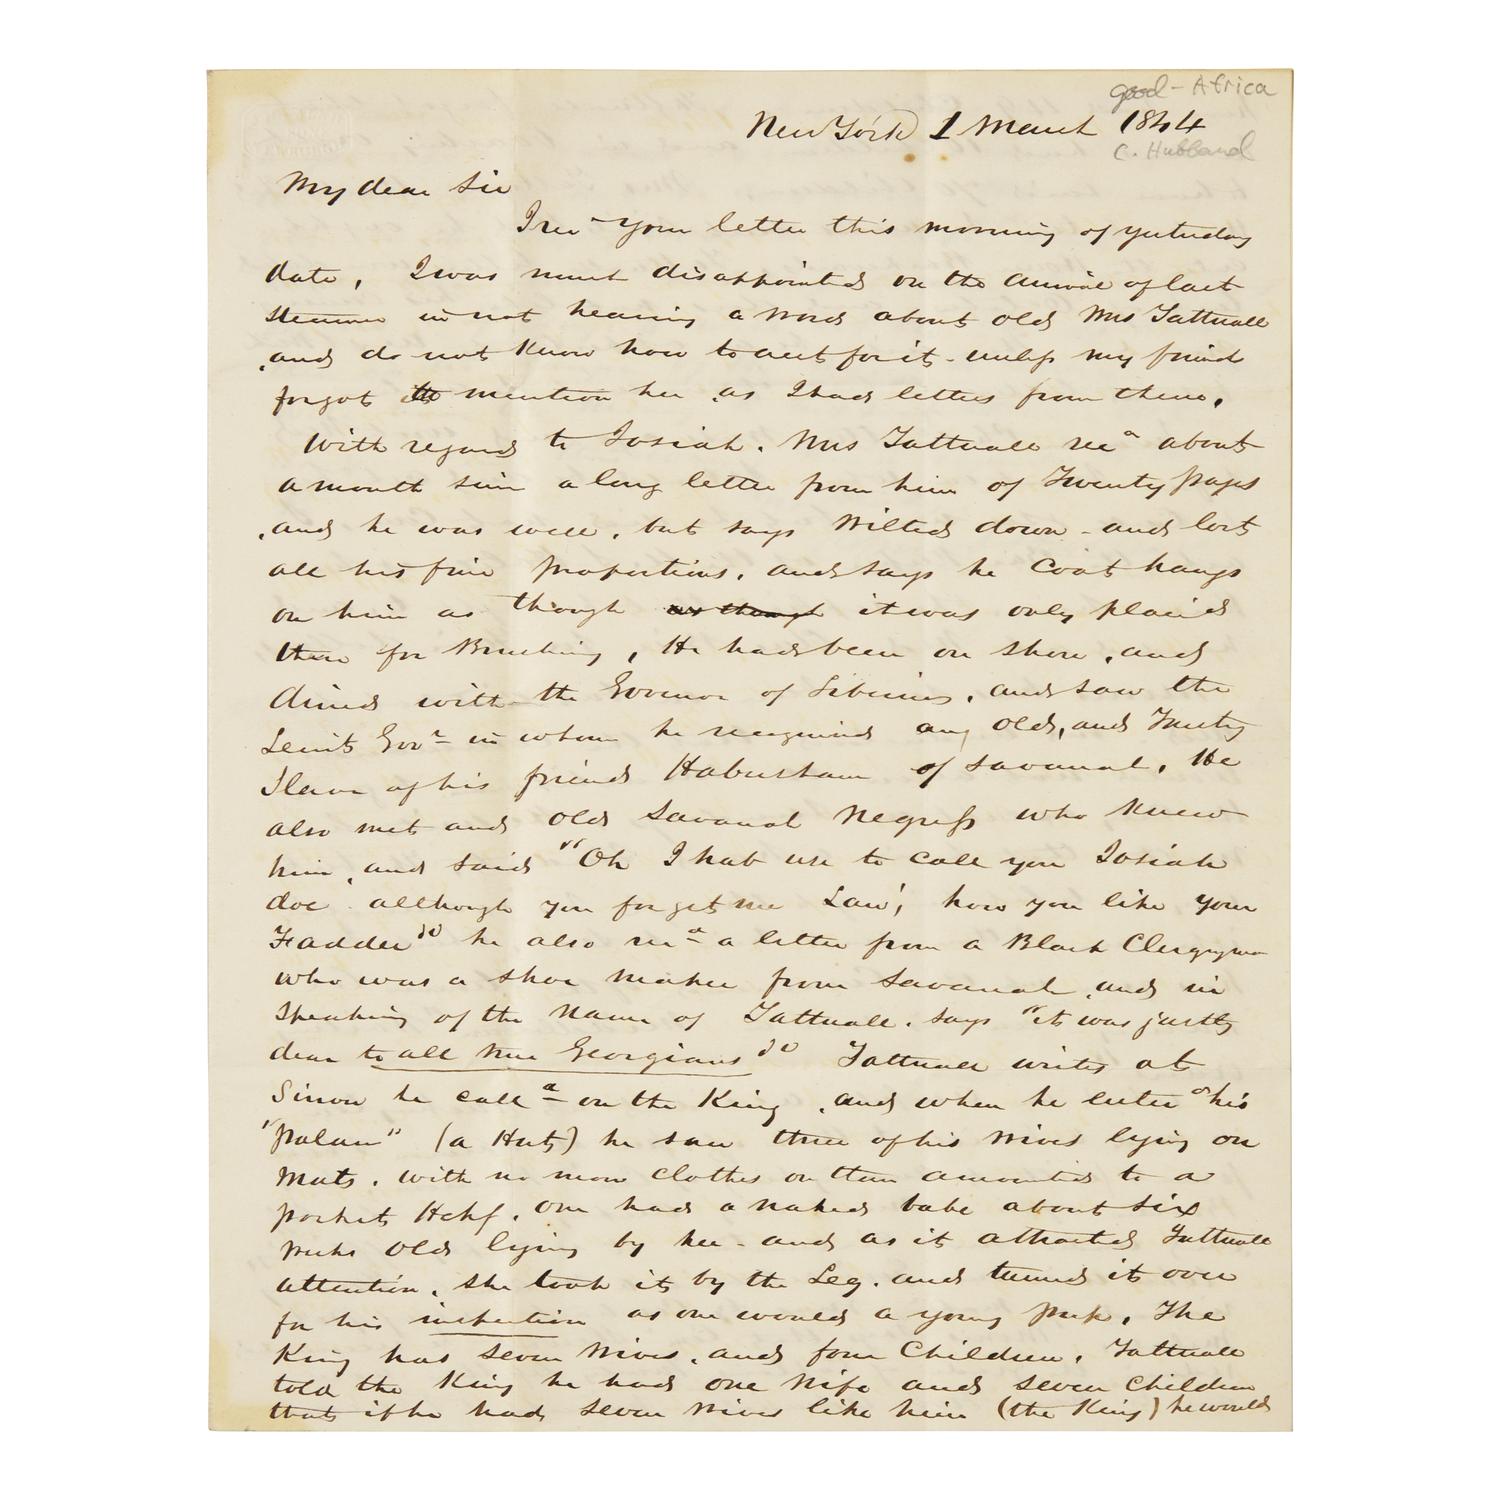 good - Africa
New York 1 March 1844
C. Hubband
My dear Sir
I recd your letter this morning of yesterday
date, I was much disappointed on the arrival of last
steamer in not hearing a word about old Mrs Tattnall
and do not know how to acct for it - unless my friend
forgot to mention her as I had letters from them.
With regard to Josiah. Mrs Tattnall recd about
a month since a long letter from him of Twenty pages
and he was well, but says Wilted down - and lost
all his fine proportions, and says he Coat hangs
on him as though as though it was only placed
there for Brushing, He had been on shore, and
dined with the Govenor of Liberia, and saw the
Leiut Govr in whom he recognised an old, and Trusty
Slave of his friend Habersham of Savanah, He
also met and old Savanah Negress who knew
him, and said "Oh I hab use to call you Josiah
doe although you forget me Law! how you like your
Fadder" he also recd a letter from a Black Clergyman
who was a shoe maker from Savanah and in
speaking of the name of Tattnall. says "it was justly
dear to all true Georgians" Tattnall writes at
Sinou he calld on the King, and when he entered his
"palace" (a Hut) he saw three of his wives lying on
Mats, with no more clothes on than amounted to a
pocket Hdkf, one had a naked babe about six
weeks old lying by her - and as it attracted Tattnalls
attention, she took it by the Leg, and turned it over
for his inspection as one would a young pup, The
King has seven Wives, and four Children, Tattnall
told the King he had one Wife and seven children
that if he had seven wives like him (the King) he would